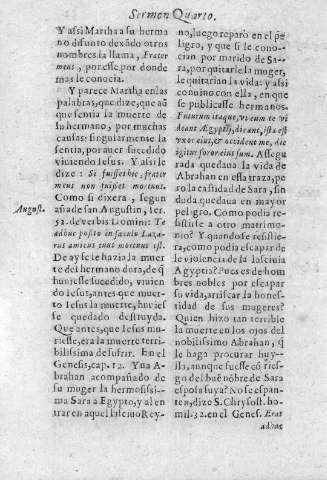 Sermon Quarto.
Y assi Martha a su herma
no difunto dexãdo otros
nombres la llama, Frater
meus, por esse, por donde
mas le conocia.
Y parece Martha en las
palabras, que dize, que aũ
que sentia la muerte de
su hermano, por muchas
causas: singularmente la
sentia, por auer sucedido
viviendo Iesus. Y assi le
dize: Si fuisses hic, frater
meus non fuisset mortuus.
Como si dixera, segun
August.
añade san Augustin, ser.
52. de verbis Domini: Te
adhuc posito in sæculo Laza-
rus amicus tuus mortuus est.
De ay se le hazia la muer
te del hermano dura, de q̃
huuiesse sucedido, viuien
do Iesus, antes que muer-
to Iesus la muerte, huuies
se quedado destruyda.
Que antes, que Iesus mu-
riesse, era la muerte terri
bilissima de sufrir. En el
Genesis, cap. 12. Yua A-
brahan acompañado de
su muger la hermosissi-
ma Sara a Egypto, y al en
trar en aquel lasciuo Rey-
no, luego reparò en el pe
ligro, y que si le cono-
cian por marido de Sa-
ra, por quitarle la muger,
le quitarian la vida: y assi
conuino con ella, en que
se publicasse hermanos.
Futurum itaque, vt cum te vi
deant Ægyptij, dicant, ista est
vxor eius, & occident me, dic
igitur soror eius sum. Assegu
rada quedaua la vida de
Abrahan en essa traza, pe
ro la castidad de Sara, sin
duda quedaua en mayor
peligro. Como podia re-
sistirse a otro matrimo-
nio? Y quando se resistie-
ra, como podia escapar de
le violencia de la lasciuia
Egyptia? Pues es de hom
bres nobles por escapar
su vida, arriscar la hones-
tidad de sus mugeres?
Quien hizo tan terrible
la muerte en los ojos del
nobilissimo Abrahan, q̃
le haga procurar huy-
lla, aunque fuesse cõ ries-
go del buẽ nõbre de Sara
esposa suya? No se espan-
ten, dize S. Chrysost. ho-
mil. 32. en el Genes. Erat
adhuc